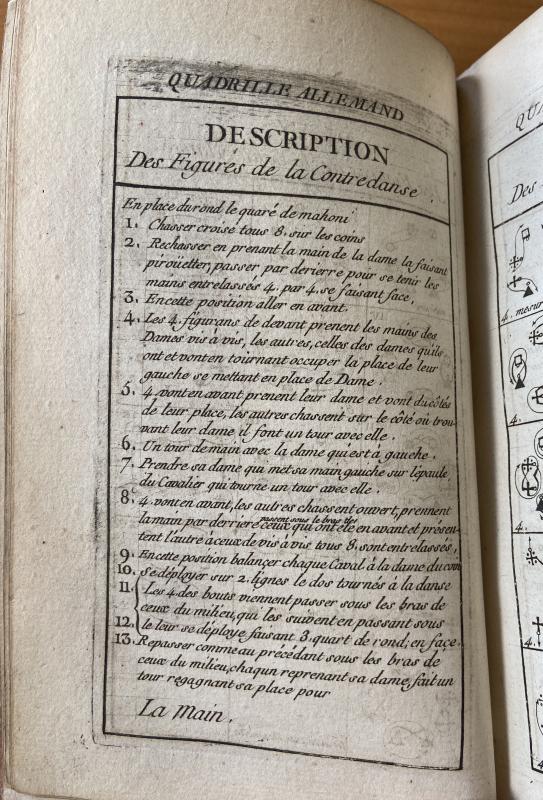 QUADRILLE ALLEMAND
DESCRIPTION
Des Figures de la Contredanse.
En place du rond le quaré de mahoni
1. Chasser croisé tous 8. sur les coins
2. Rechasser en prenant la main de la dame la faisant
piroüetter, passer par derierre pour se tenir les
mains entrelassés 4. par 4. se faisant face,
3. En cette position aller en avant.
4. Les 4. figurans de devant prenent les mains des
Dames vis à vis, les autres, celles des dames qu'ils
ont et vont en tournant occuper la place de leur
gauche se mettant en place de Dame.
5. 4. vont en avant prenent leur dame et vont du côtés
de leur place, les autres chassent sur le côté où trou-
vant leur dame il font un tour avec elle.
6. Un tour de main avec la dame qui est à gauche.
7. Prendre sa dame qui met sa main gauche sur l'epaule
du Cavalier qui tourne un tour avec elle.
8. 4. vont en avant, les autres chassent ouvert, prennent
passent sous le bras des
la main par derriere ceux qui ont été en avant et présen-
tent l'autre à ceux de vis à vis tous 8. sont entrelassés,
9. En cette position balancer chaque Caval. à la dame du
10. Se déployer sur 2. lignes le dos tournés à la danse
11. Les 4. des bouts viennent passer sous les bras de
ceux du milieu, qui les suivent en passant sous
12. le leur se déploye faisant 3. quart de rond, en face.
13. Repasser comme au précédant sous les bras de
ceux du milieu, chaqun reprenant sa dame, fait un
tour regagnant sa place pour
La Main.
QU
Des
4. mesur
4.
4.
4.